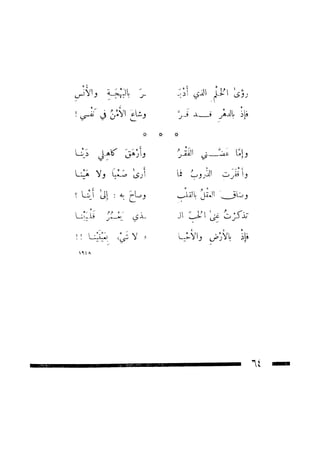 رؤى الحلم الذي أدبـ ـرَ بالبهجـةِ والأنْسِ
فإذْ بالدهرِ قـد قـرَّ وشاعَ الأمْنُ في نَفْسي !
* * *
وإمّا عضّـني الفقْـرُ وأرْهَقَ كاهِلي دَيْنـا
وأقْفَرَت الدُّروبُ فما أرىٰ صَعْبًا ولا هَيْنـا
وضاقَ العقْلُ بالقلْبِ وصاحَ به : إلىٰ أيْنـا ؟
تذكرْتُ غِنىٰ الحُبِّ الـ ـذي يَعْمُرُ قلْبَيْنـا
فإذْ بالأرْضِ والأحْيـا ء لا شيْءَ بعيْنَيْنـا !!
١٩٤٨
٦٤